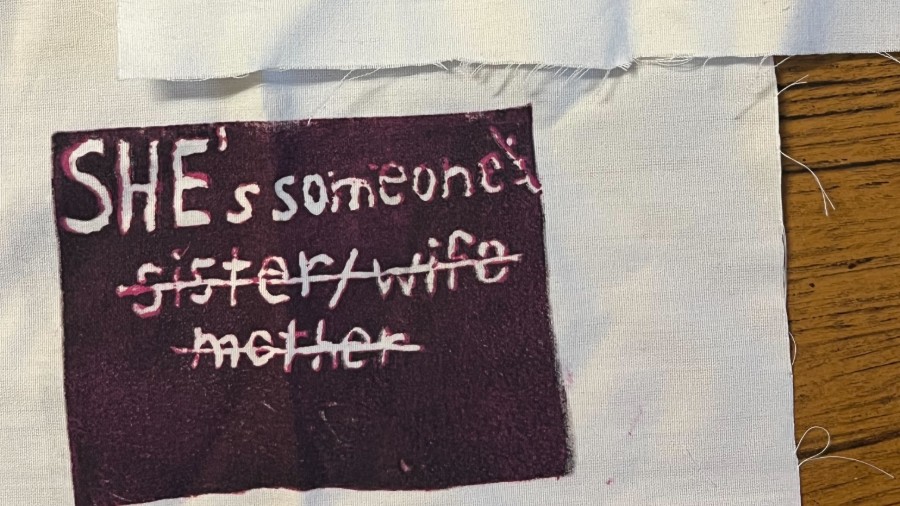 SHE's someone's
sister/wife
mother